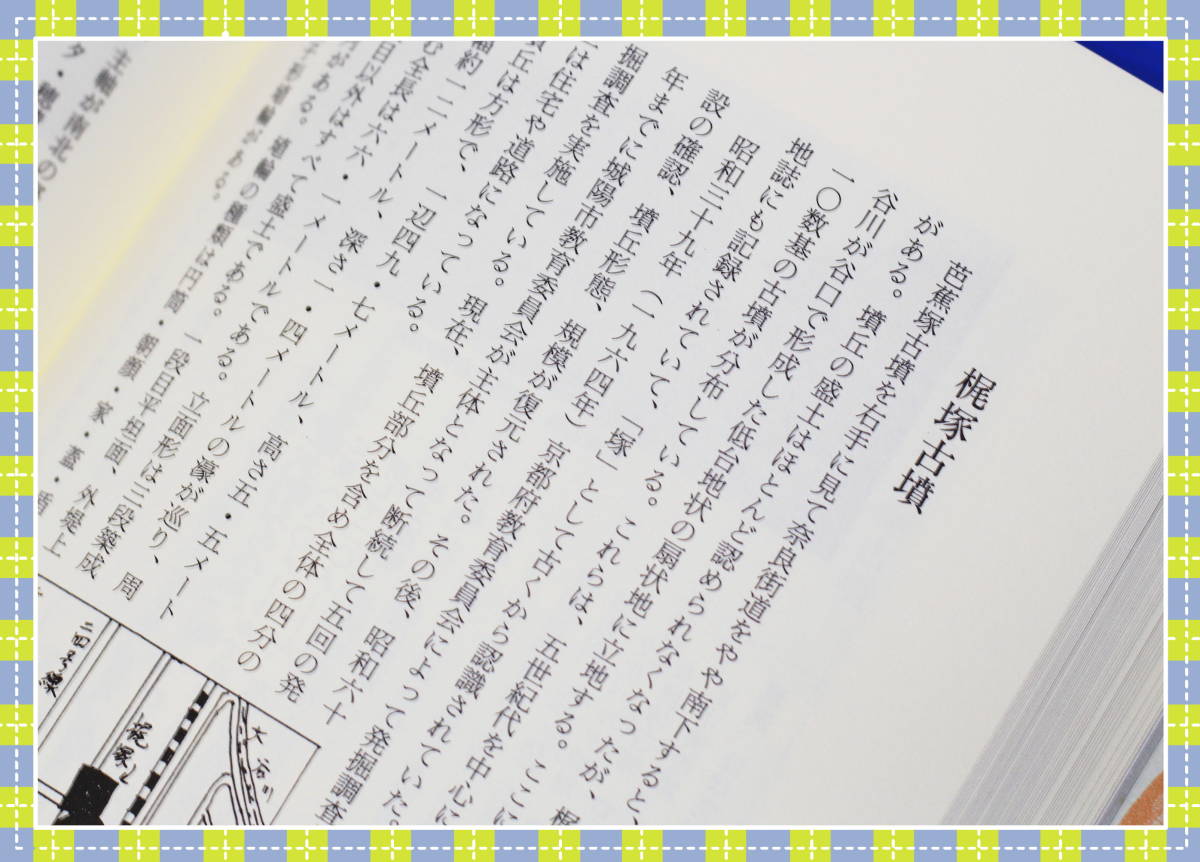 梶塚古墳
芭蕉塚古墳を右手に見て奈良街道をやや南下すると、
がある。墳丘の盛土はほとんど認められなくなったが、梶
谷川が谷口で形成した低台地状の扇状地に立地する。ここに
一〇数基の古墳が分布している。これらは、五世紀代を中心に
地誌にも記録されていて、「塚」として古くから認識されていた。
昭和三十九年（一九六四年）京都府教育委員会によって発掘調査
設の確認、墳丘形態、規模が復元された。その後、昭和六十
年までに城陽市教育委員会が主体となって断続して五回の発
掘調査を実施している。現在、墳丘部分を含め全体の四分の
は住宅や道路になっている。
墳丘は方形で、一辺四九・七メートル、高さ五・五メート
幅約一二メートル、深さ一・四メートルの濠が巡り、周
む全長は六六・一メートルである。立面形は三段築成
目以外はすべて盛土である。一段目平坦面、外堤上
がある。埴輪の種類は円筒・朝顔・家・蓋・盾
子形埴輪がある。
主軸が南北の
大谷川
梶塚
二四号線